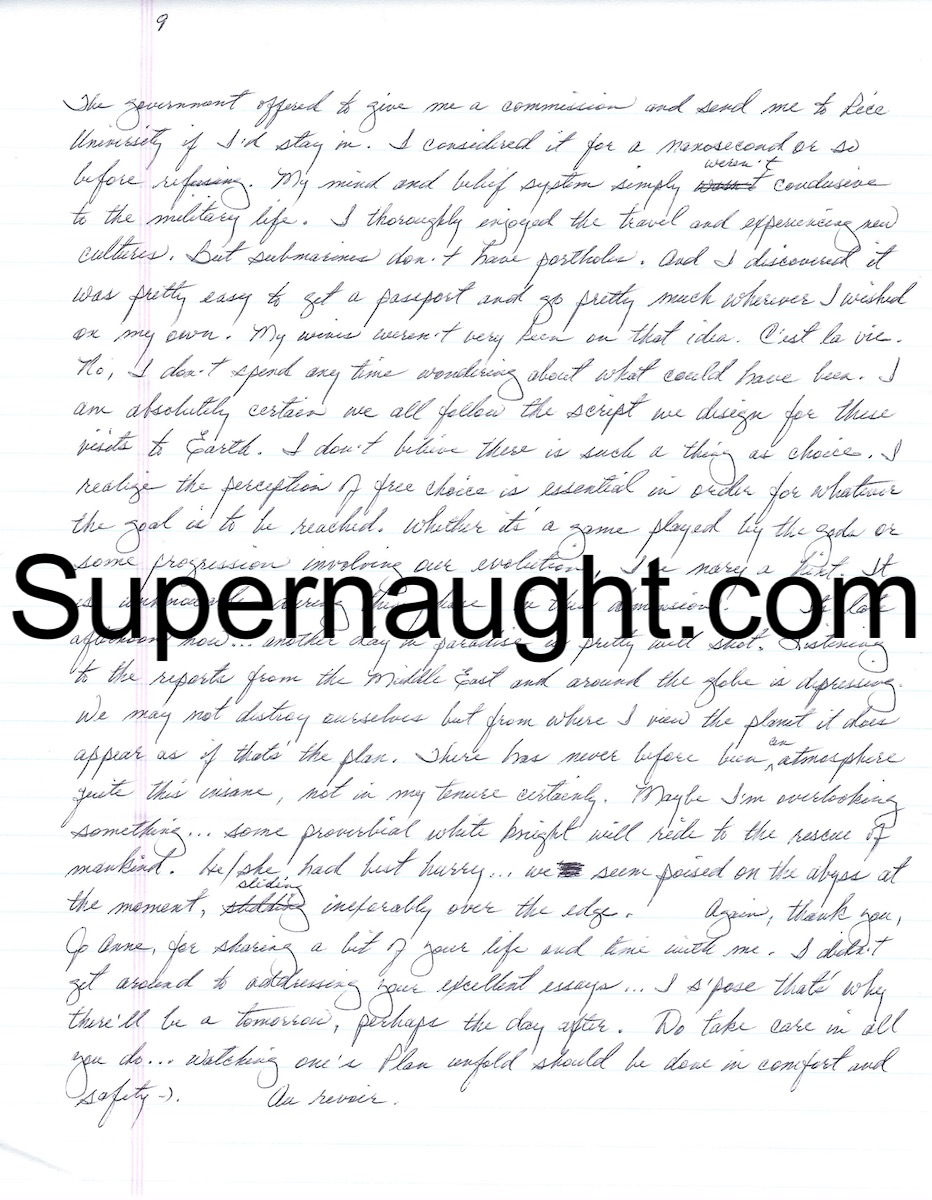 9
The government offered to give me a commission and send me to Rice
University if I'd stay in. I considered it for a nanosecond or so
before refusing. My mind and belief system simply weren't conducive
to the military life. I thoroughly enjoyed the travel and experiencing new
cultures. But submarines don't have portholes. And I discovered it
was pretty easy to get a passport and go pretty much wherever I wished
on my own. My wives weren't very keen on that idea. C'est la vie.
No, I don't spend any time wondering about what could have been. I
am absolutely certain we all follow the script we design for these
visits to Earth. I don't believe there is such a thing as choice. I
realize the perception of free choice is essential in order for whatever
the goal is to be reached. Whether it's a game played by the gods or
some progression involving our evolution I've nary a hint. It
Supernaught.com
is in this dimension. It's late
afternoon now... another day in paradise is pretty well shot. Listening
to the reports from the Middle East and around the globe is depressing.
We may not destroy ourselves but from where I view the planet it does
appear as if that's the plan. There has never before been an atmosphere
quite this insane, not in my tenure certainly. Maybe I'm overlooking
something... some proverbial white knight will ride to the rescue of
mankind. He/she had best hurry... we seem poised on the abyss at
the moment, sliding inexorably over the edge. Again, thank you,
Jo Anne, for sharing a bit of your life and time with me. I didn't
get around to addressing your excellent essays... I s'pose that's why
there'll be a tomorrow, perhaps the day after. Do take care in all
you do... watching one's Plan unfold should be done in comfort and
safety :). Au revoir.